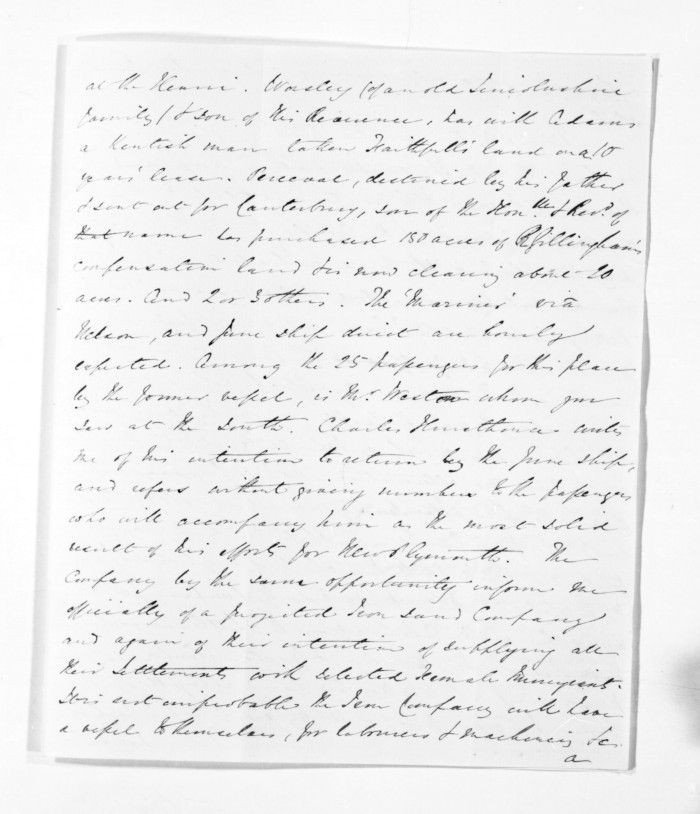 at the Henui. Worsley (of an old Lincolnshire
family) & son of His Reverence, has with Adams
a Kentish man taken Faithfull's land on a 10
years' lease. Perceval, destined by his father
& sent out for Canterbury, son of the Honble & Revd. of
that name has purchased 150 acres of Gillingham's
compensation land & is now clearing about 20
acres. And 2 or 3 others. The 'Mariner' via
Nelson, and June ship direct are hourly
expected. Among the 25 passengers for this place
by the former vessel, is Mr. Weston whom you
saw at the South. Charles Hursthouse writes
me of his intention to return by the June ship,
and refers without giving numbers to the passengers
who will accompany him as the most solid
result of his efforts for New Plymouth. The
Company by the same opportunity inform me
officially of a projected Iron Sand Company
and again of their intention of supplying all
their Settlements with selected Female Immigrants.
It is not improbable the Iron Company will have
a vessel to themselves, for labourers & machinery &c.
a